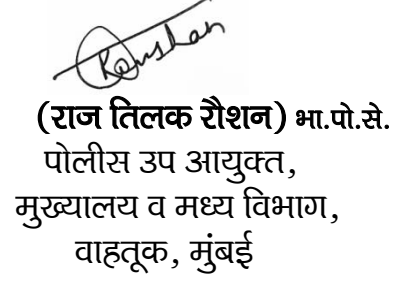 Roushan
(राज तिलक रौशन) भा.पो.से.
पोलीस उप आयुक्त,
मुख्यालय व मध्य विभाग,
वाहतूक, मुंबई